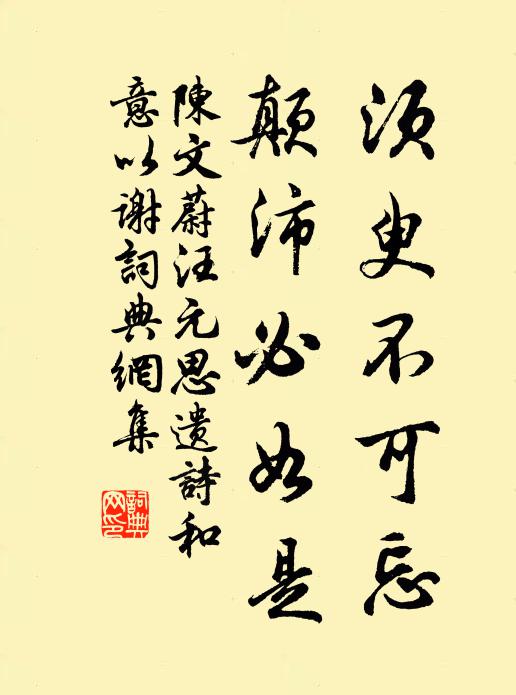 須臾不可忘
顛沛必如是
陳文蔚汪元思遺詩和
意以謝詞典網集
詞典
网印